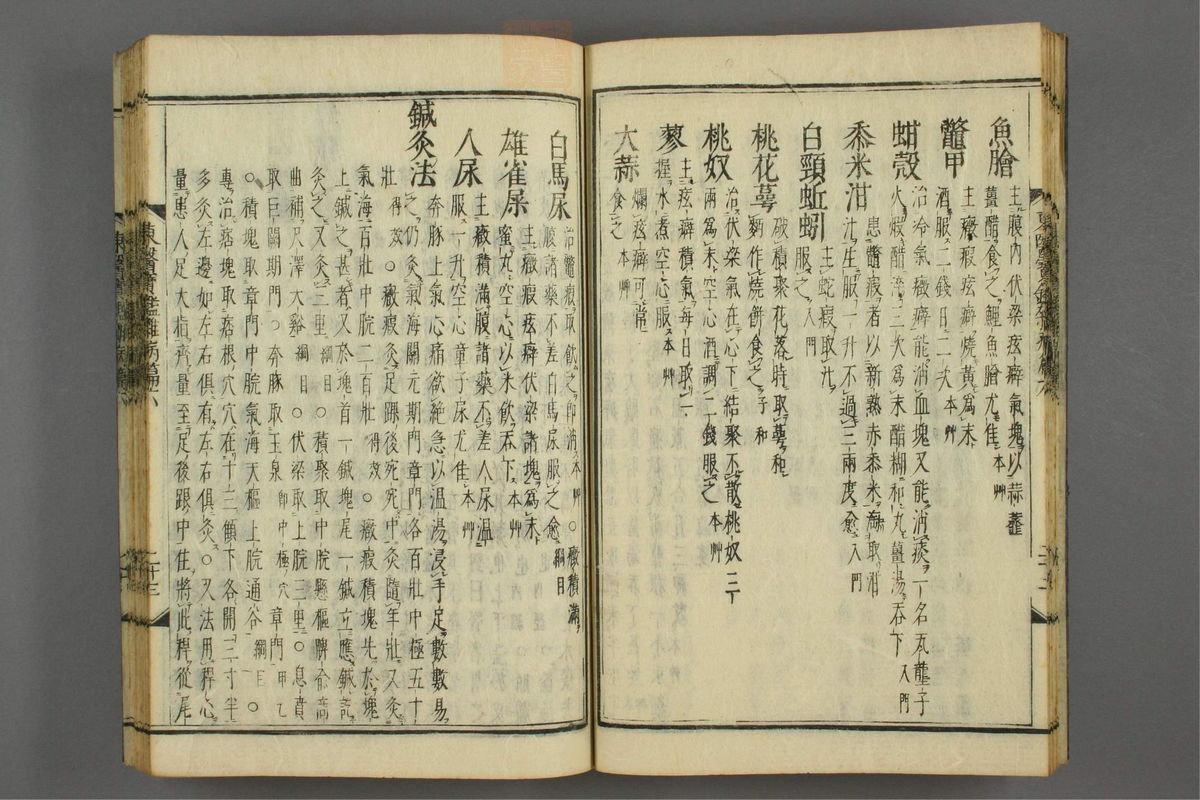 魚膾 主腹內伏梁痃癖氣塊以蒜虀
薑醋食之鯉魚膾尤佳本艸
鼈甲 主癥瘕痃癖燒黃爲末
酒服二錢日二夫本艸
蚶殼 治冷氣癥癖能消血塊又能消痰一名瓦壟子
火煆醋淬三次爲末醋糊和丸薑湯吞下入門
黍米泔 患鼈瘕者以新熟赤黍米淘取泔
汁生服一升不過三兩度愈入門
白頸蚯蚓 主蛇瘕取汁
服之入門
桃花蕚 破積聚花落時取蕚和
麪作燒餅食之子和
桃奴 治伏梁氣在心下結聚不散桃奴三
兩爲末空心酒調二錢服之本艸
蓼 主痃癖積氣每日取一
握水煮空心服本艸
大蒜 爛痃癖可常
食之本艸
白馬尿 治鼈瘕取飮之卽消本艸○癥積滿
腹諸藥不差白馬尿服之愈綱目
雄雀屎 主癥瘕痃癖伏梁諸塊爲末
蜜丸空心以米飮吞下本艸
人尿 主癥積滿腹諸藥不差人尿温
服一升空心童子尿尤佳本艸
鍼灸法 奔豚上氣心痛欲絕急以温湯浸手足數數易
之仍灸氣海關元期門章門各百壯中極五十
壯得效○癥瘕灸足踝後宛宛中灸隨年壯又灸
氣海百壯中脘二百壯得效○癥瘕積塊先於塊
上鍼之甚者又於塊首一鍼塊尾一鍼立應鍼訖
灸之又灸三里綱目○積聚取中脘懸樞脾俞商
曲補尺澤大谿綱目○伏梁取上脘三里○息賁
取巨闕期門○奔豚取玉泉卽中極穴章門甲乙
○積塊取章門中脘氣海天樞上脘通谷綱目○
專治痞塊取痞根穴穴在十三顀下各開三寸半
多灸左邊如左右俱有左右俱灸○又法用稈心
量患人足大指齊量至足後跟中住將此稈從尾